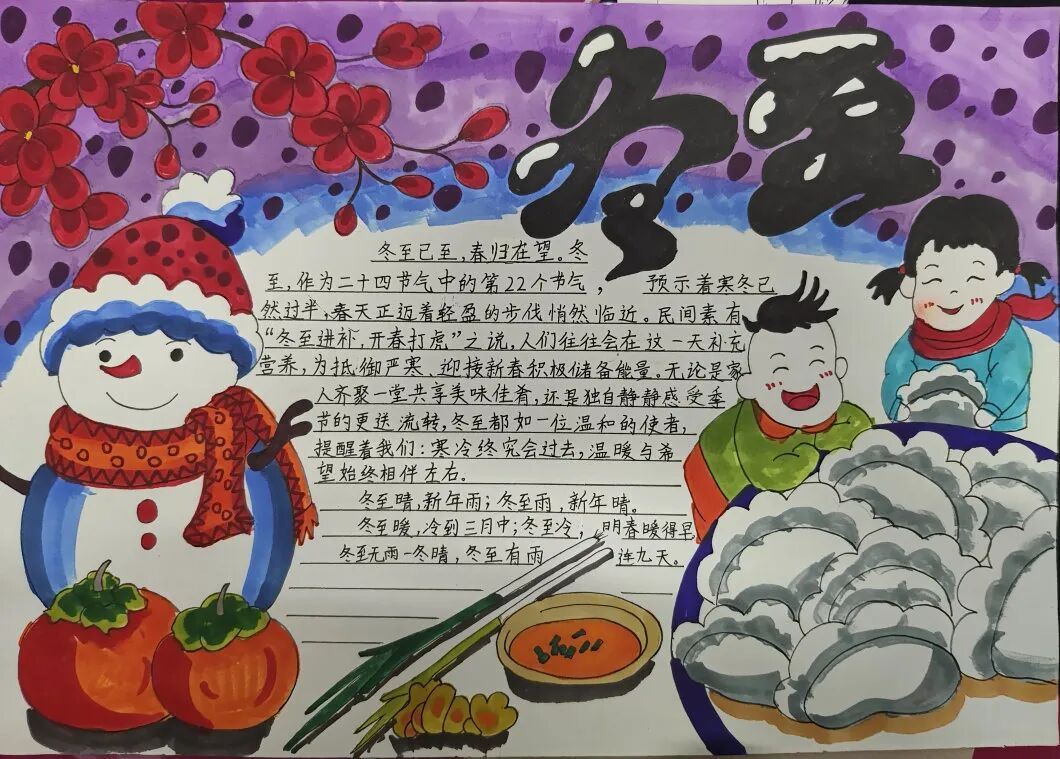 冬至
冬至已至，春归在望。冬
至，作为二十四节气中的第22个节气， 预示着寒冬已
然过半，春天正迈着轻盈的步伐悄然临近。民间素有
“冬至进补，开春打虎”之说，人们往往会在这一天补充
营养，为抵御严寒、迎接新春积极储备能量。无论是家
人齐聚一堂共享美味佳肴，还是独自静静感受季
节的更迭流转，冬至都如一位温和的使者，
提醒着我们：寒冷终究会过去，温暖与希
望始终相伴左右。
冬至晴，新年雨；冬至雨，新年晴。
冬至暖，冷到三月中；冬至冷，明春暖得早
冬至无雨一冬晴，冬至有雨 连九天。